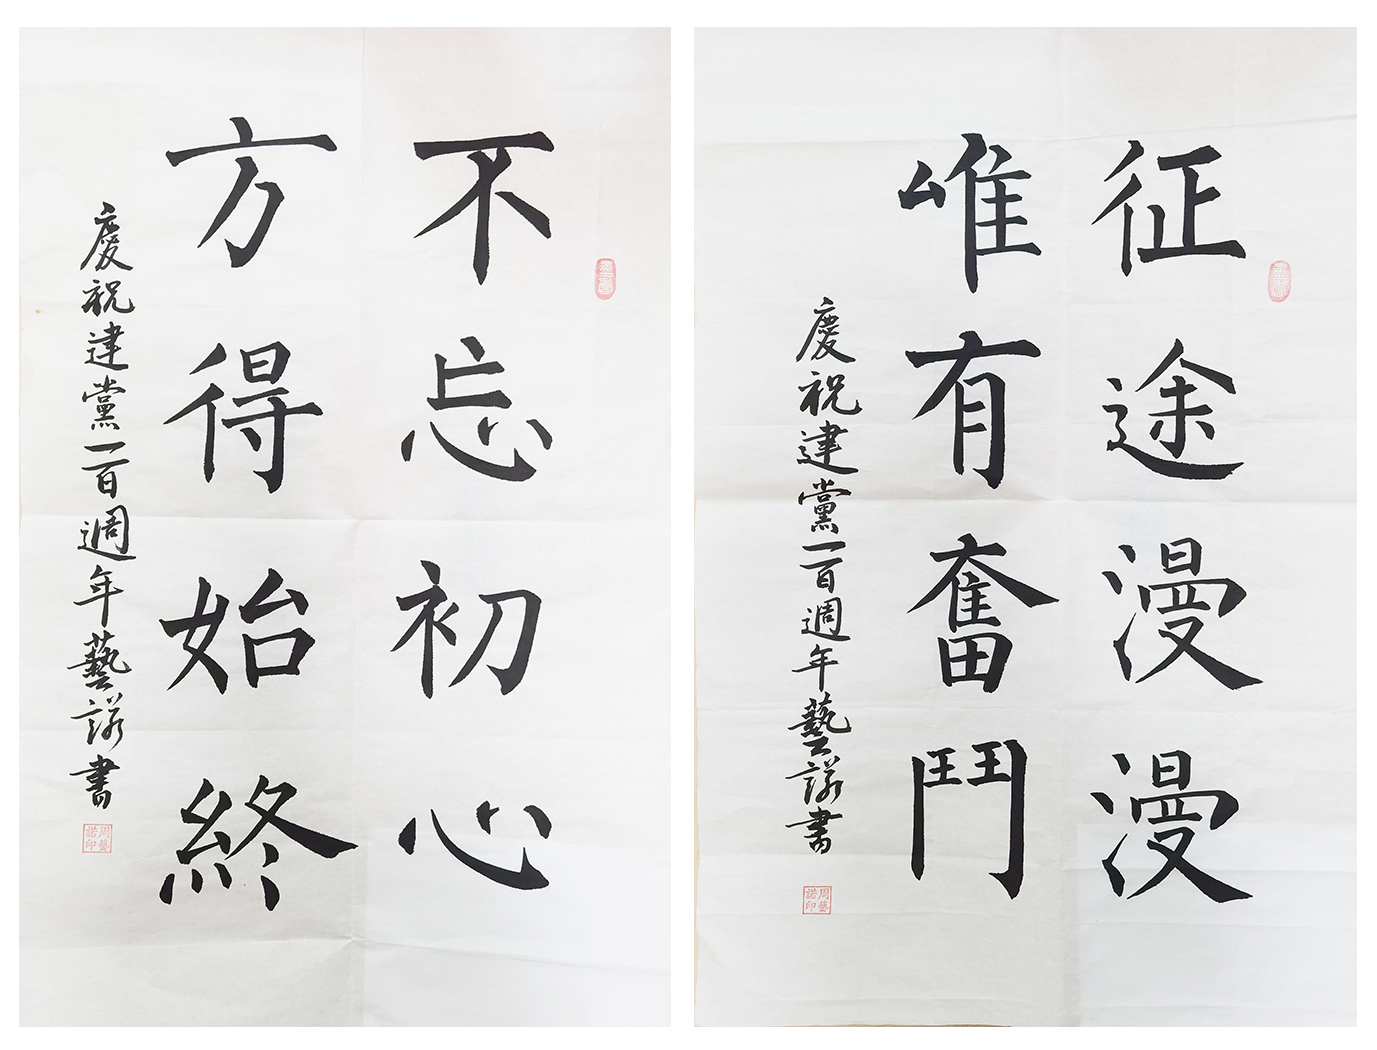 不忘初心
方得始終
慶祝建黨一百週年藝諾書
周藝諾印
征途漫漫
唯有奮鬥
慶祝建黨一百週年藝諾書
周藝諾印